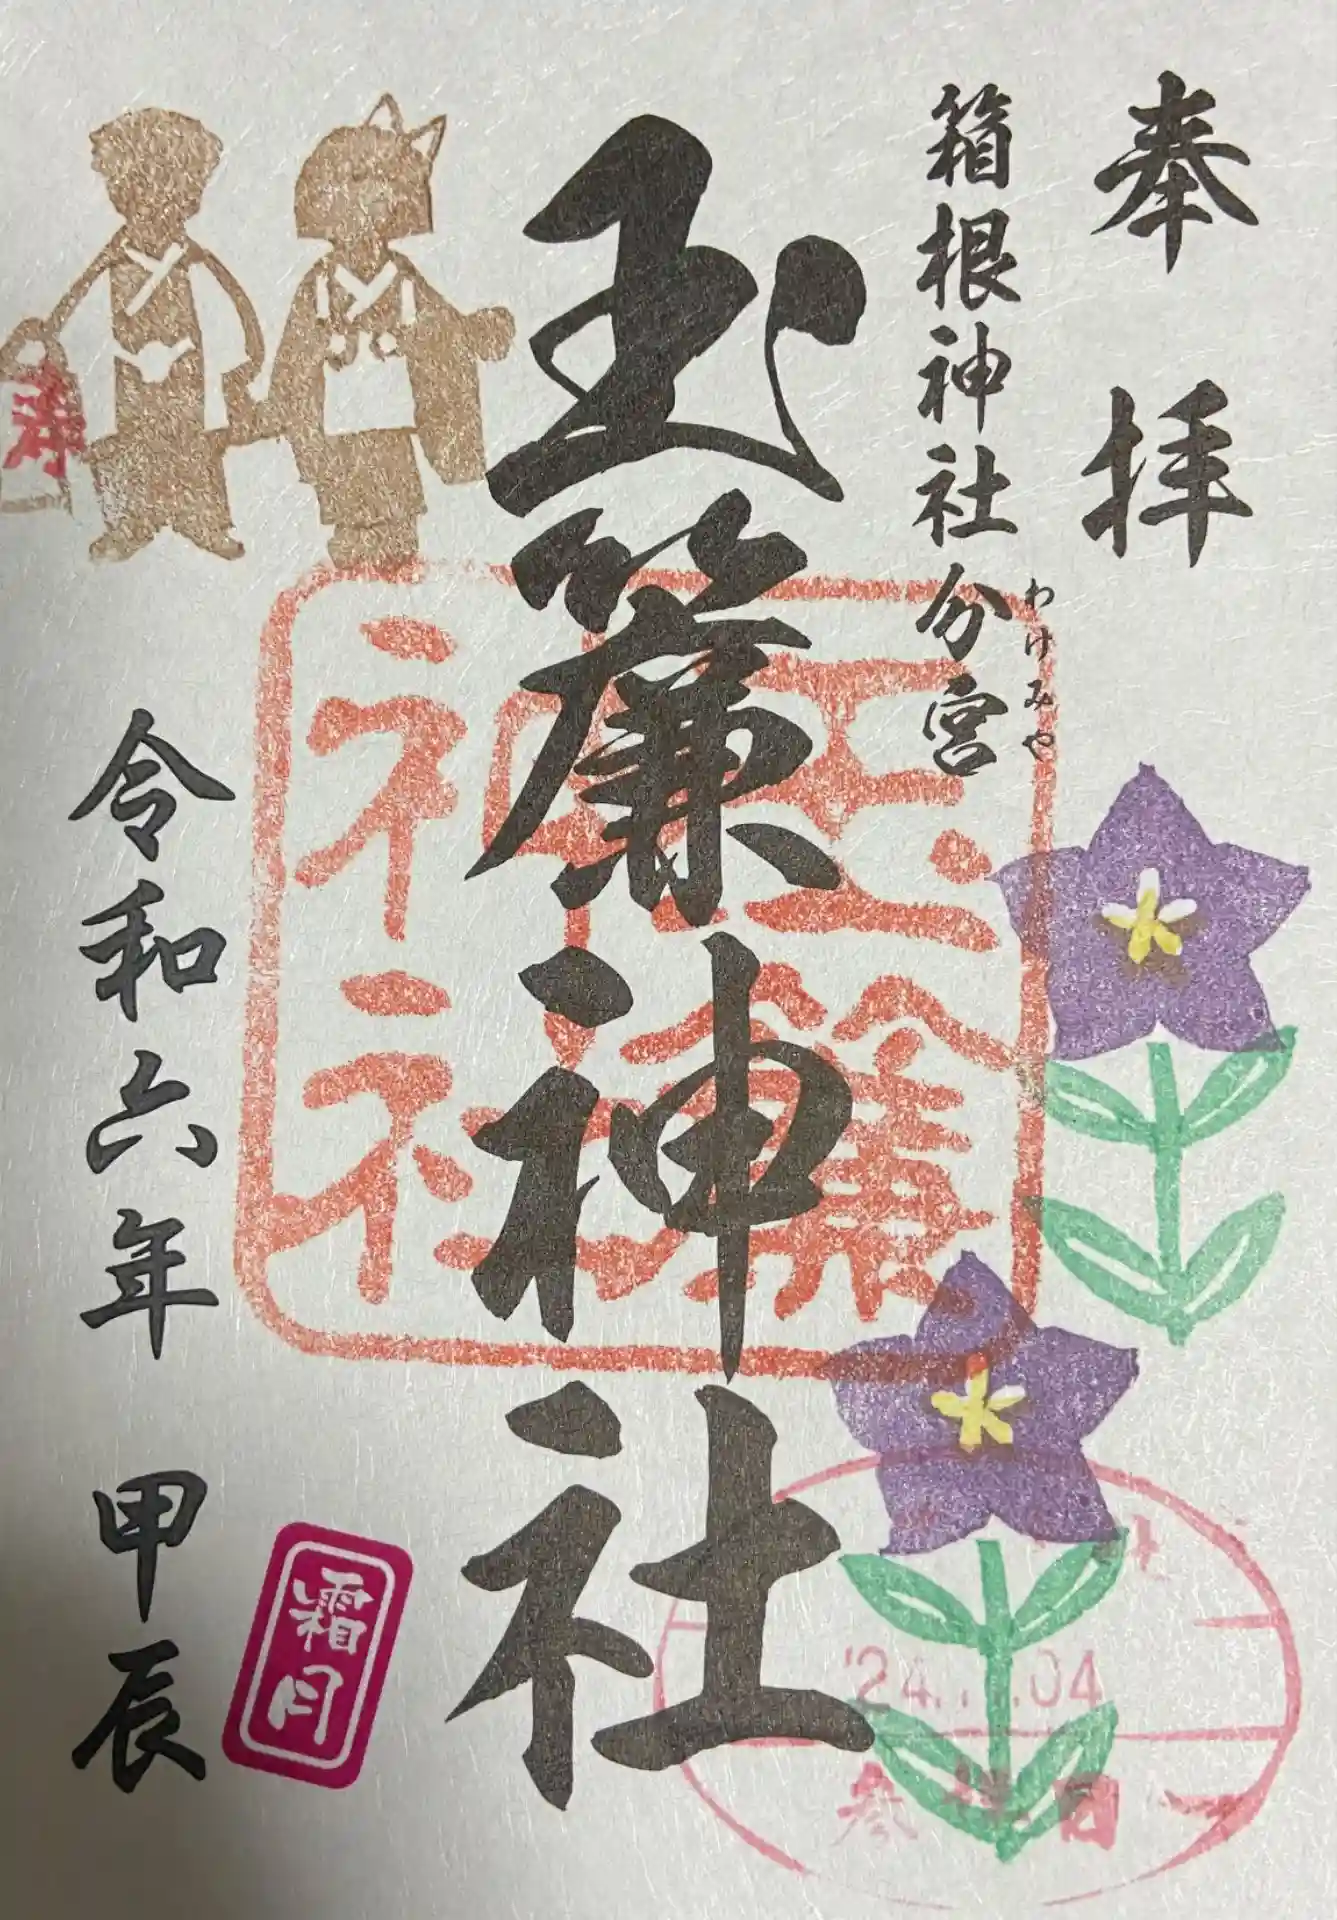 奉拝
箱根神社分宮
わけみや
玉簾神社
玉簾神社
寿
令和六年 甲辰
霜月
参拝日